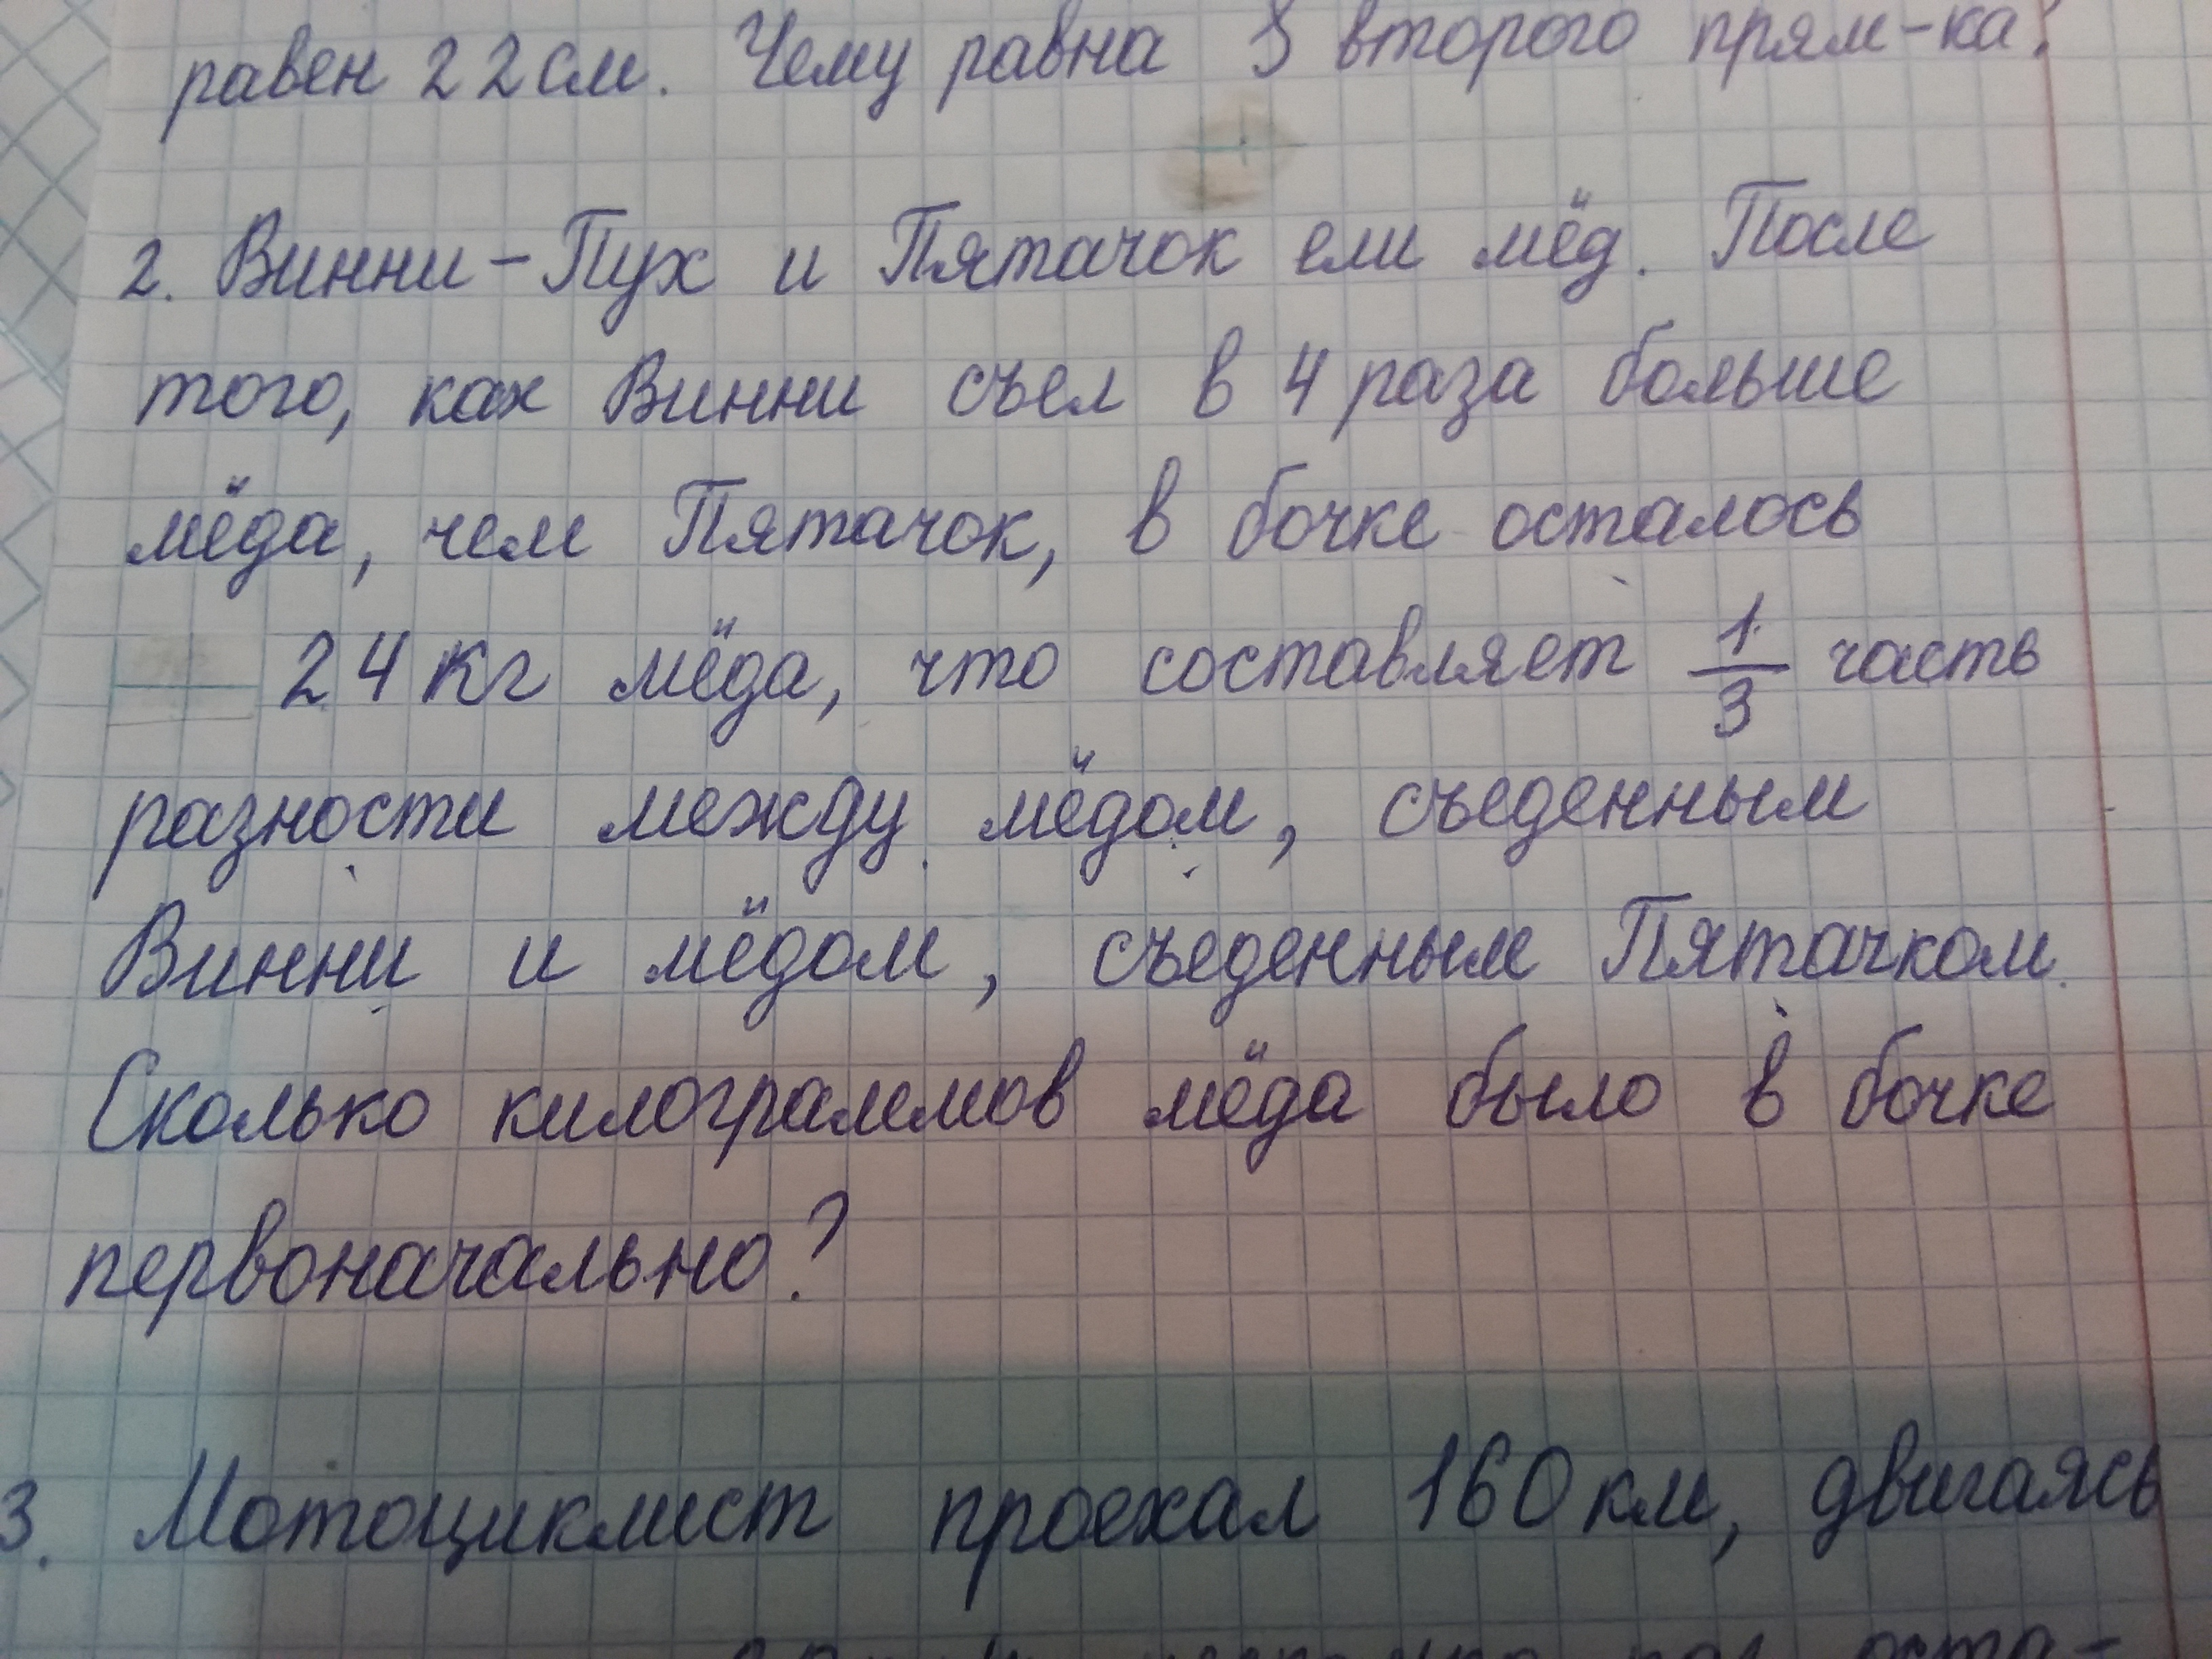 равен 22 см. Чему равна S второго прям-ка?
2. Винни-Пух и Пятачок ели мёд. После
того, как Винни съел в 4 раза больше
мёда, чем Пятачок, в бочке осталось
24 кг мёда, что составляет 1/3 часть
разности между мёдом, съеденным
Винни и мёдом, съеденным Пятачком.
Сколько килограммов мёда было в бочке
первоначально?
3. Мотоциклист проехал 160 км, двигаясь